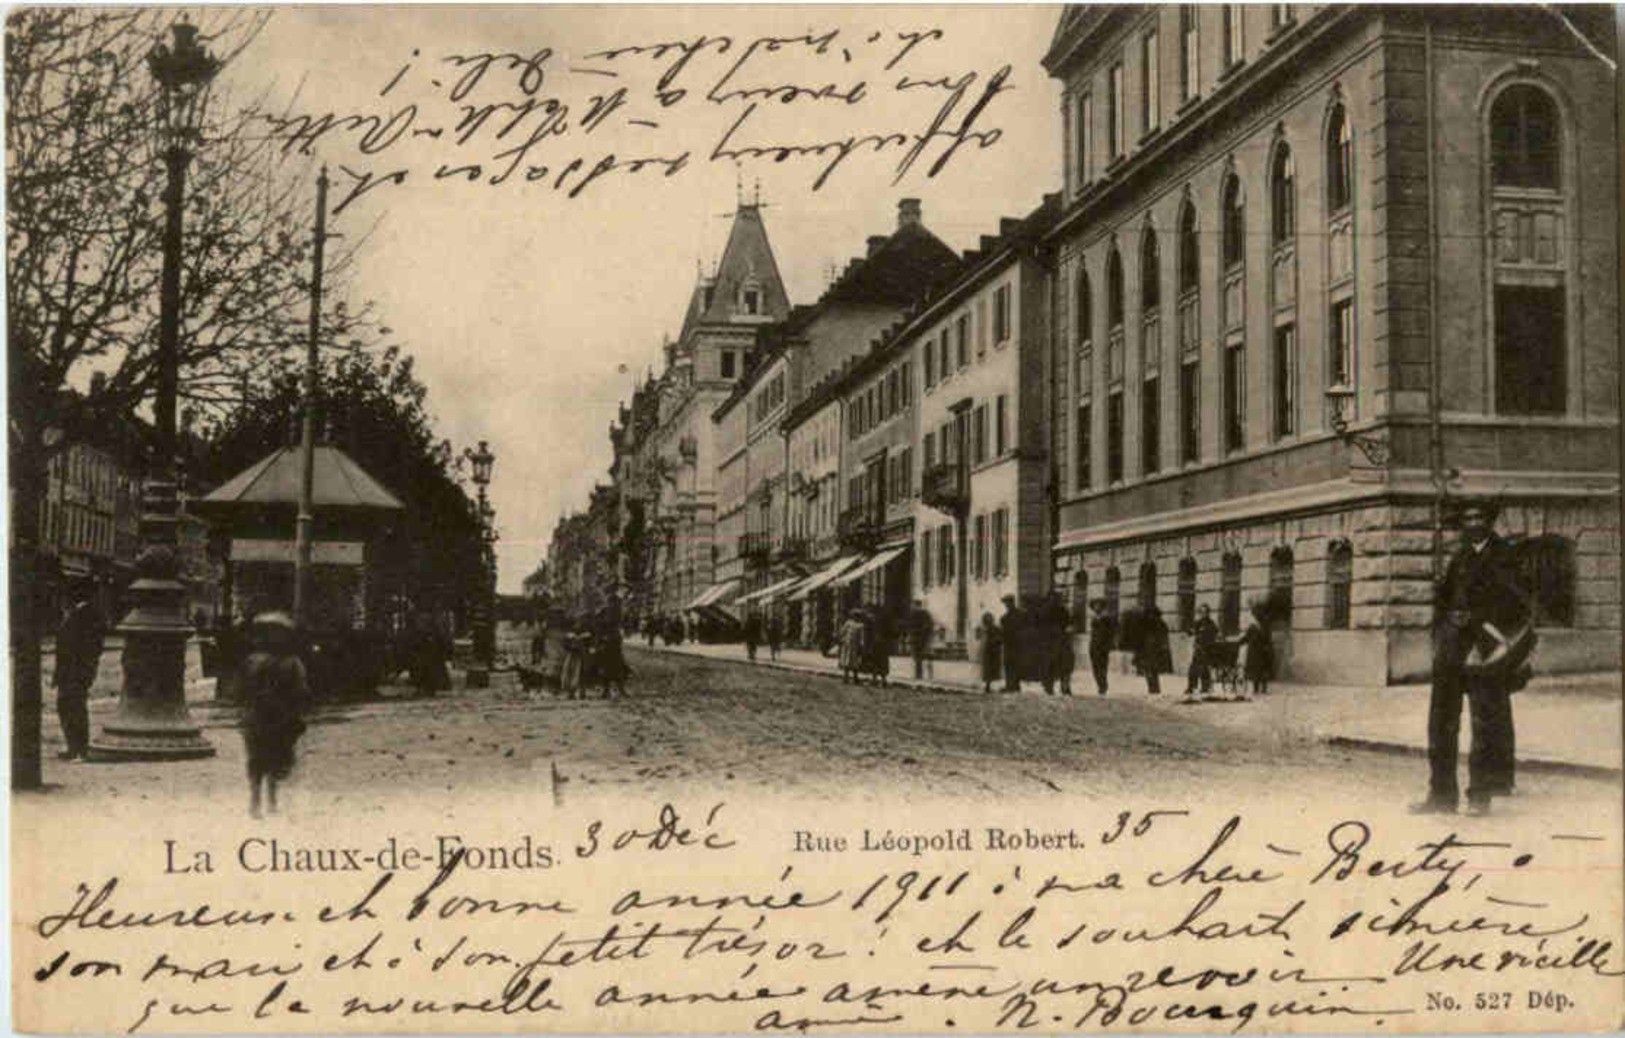 affectueux messages et
bons voeux à
chère
La Chaux-de-Fonds. 30 Déc Rue Léopold Robert. 35
Heureuse et bonne année 1911 à ma chère Berty, à
son mari et à son petit trésor ! et le souhait sincère
que la nouvelle année amène un revoir. Une vieille
amie. N. Bourquin.
No. 527 Dép.